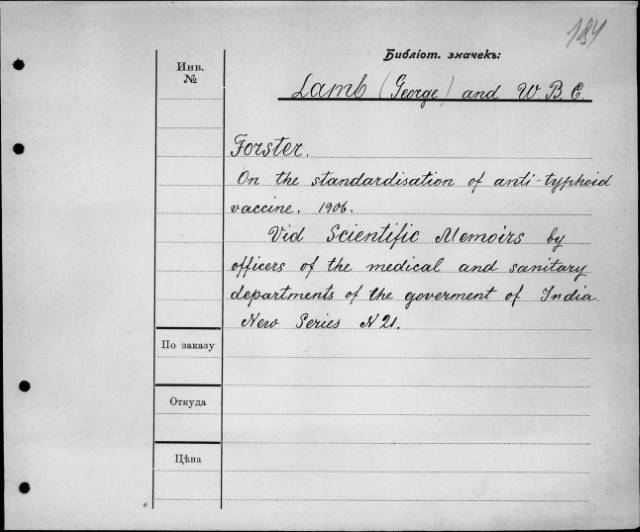 184
Библіот. значекъ:
Инв.
№
Lamb (George) and W. B. C.
Forster.
On the standardisation of anti-typhoid
vaccine. 1906.
Vid Scientific Memoirs by
officers of the medical and sanitary
departments of the goverment of India.
New Series N 21.
По заказу
Откуда
Цѣна